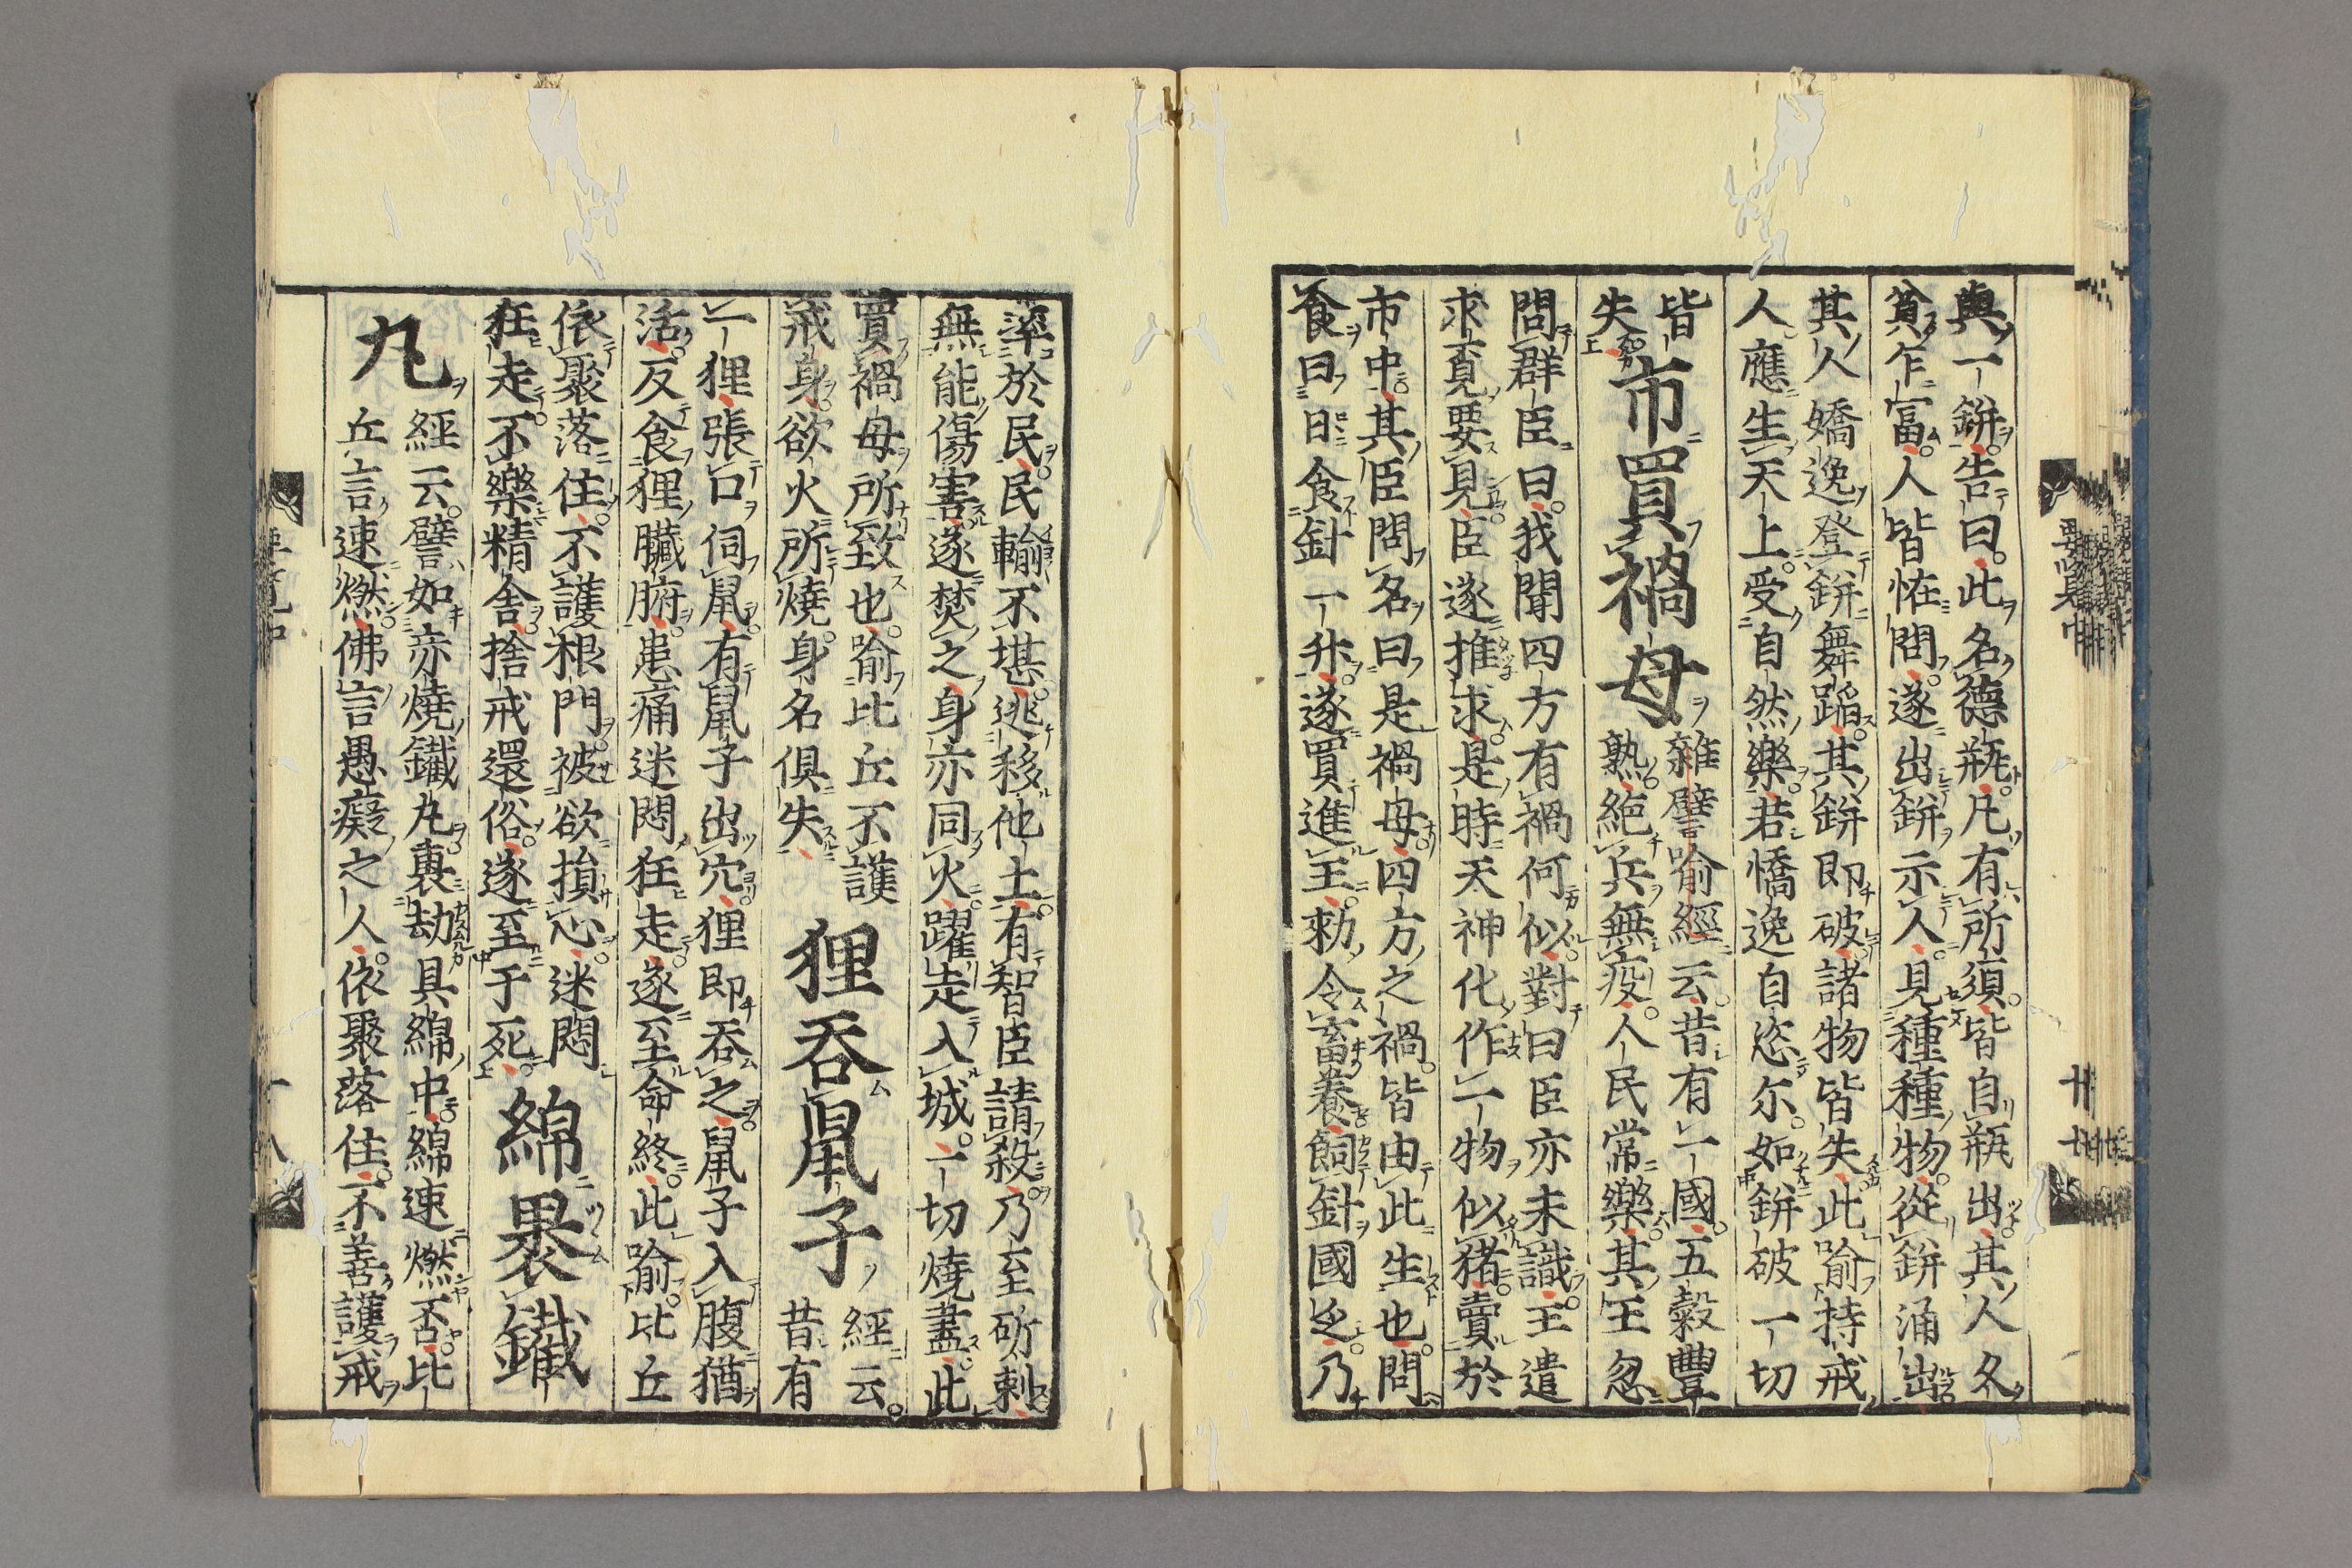 與一缾告曰此名德瓶凡有所須皆自瓶出其人久
貧乍富人皆恠問遂出缾示人見種種物從缾涌出
其人嬌逸登缾舞蹈其缾即破諸物皆失此喻持戒
人應生天上受自然樂若憍逸自恣尓如缾破一切
皆
失
市買禍母
雜譬喻經云昔有一國五穀豐
熟絶兵無疫人民常樂其王忽
問群臣曰我聞四方有禍何似對曰臣亦未識王遣
求覓要見臣遂推求是時天神化作一物似猪賣於
市中其臣問名曰是禍母四方之禍皆由此生也問
食曰日食針一升遂買進王勑令畜養飼針國乏乃
率於民民輸不堪逃移他土有智臣請殺乃至斫刺
無能傷害遂焚之身亦同火躍走入城一切燒盡此
買禍母所致也喻比丘不護
戒身欲火所燒身名俱失
狸吞鼠子
經云
昔有
一狸張口伺鼠有鼠子出穴狸即吞之鼠子入腹猶
活反食狸臟腑患痛迷悶狂走遂至命終此喻比丘
依聚落住不護根門被欲損心迷悶
狂走不樂精舍捨戒還俗遂至于死
綿褁鐵
丸
經云譬如亦燒鐵丸褁劫具綿中綿速燃否比
丘言速燃佛言愚癡之人依聚落住不善護戒